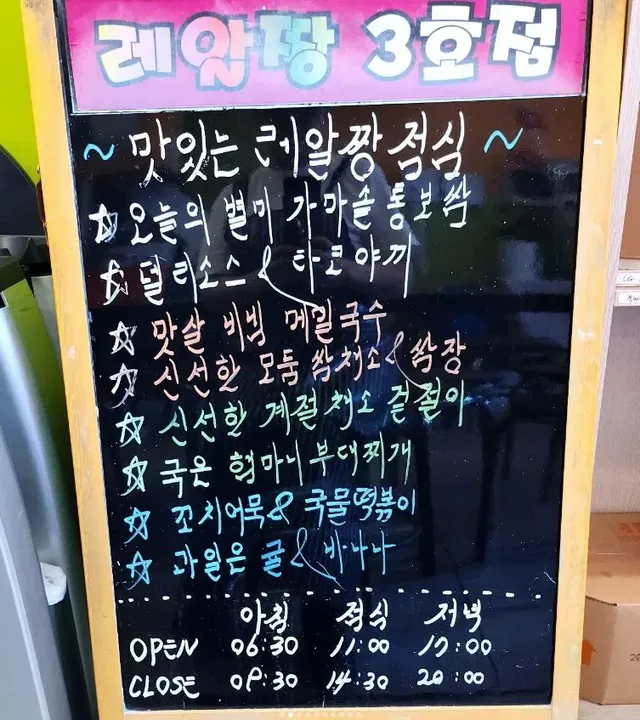 레알짱 3호점
~ 맛있는 레알짱 점심 ~
☆ 오늘의 별미 가마솥 통보쌈
☆ 델리소스 & 타코야끼
☆ 맛살 비빔 메밀국수
☆ 신선한 모둠 쌈채소 & 쌈장
☆ 신선한 계절채소 겉절이
☆ 국은 햄마니 부대찌개
☆ 꼬치어묵 & 국물떡볶이
☆ 과일은 귤 & 바나나
아침 점심 저녁
OPEN 06:30 11:00 17:00
CLOSE 09:30 14:30 20:00